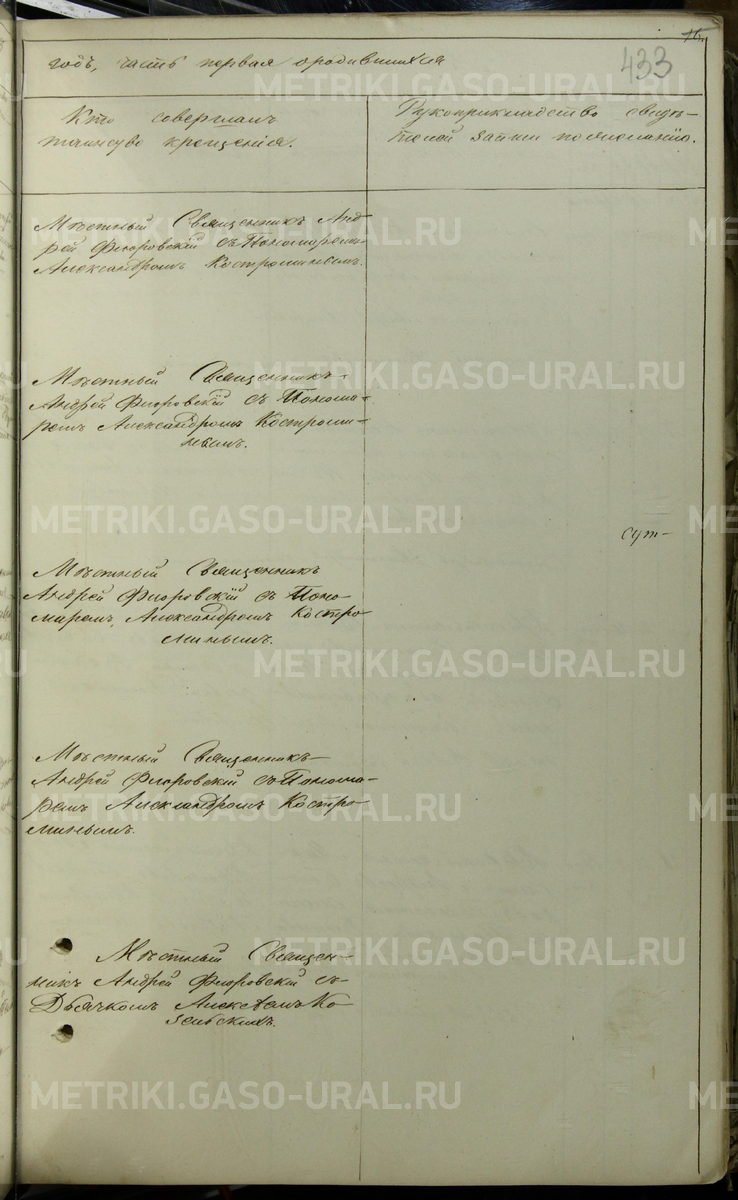 16.
433
годъ, часть первая о родившихся
Кто совершалъ
таинство крещенія.
Рукоприкладство свидѣ-
телей записи по желанію.
Мѣстный Священникъ Анд-
рей Флоровскій съ Пономаремъ
Александромъ Костроминымъ.
Мѣстный Священникъ
Андрей Флоровскій съ Понома-
ремъ Александромъ Костроми-
нымъ.
сут-
Мѣстный Священникъ
Андрей Флоровскій съ Поно-
маремъ Александромъ Костро-
минымъ.
Мѣстный Священникъ
Андрей Флоровскій съ Понома-
ремъ Александромъ Костро-
минымъ.
Мѣстный Священ-
никъ Андрей Флоровскій съ
Дьячкомъ
METRIKI.GASO-URAL.RU